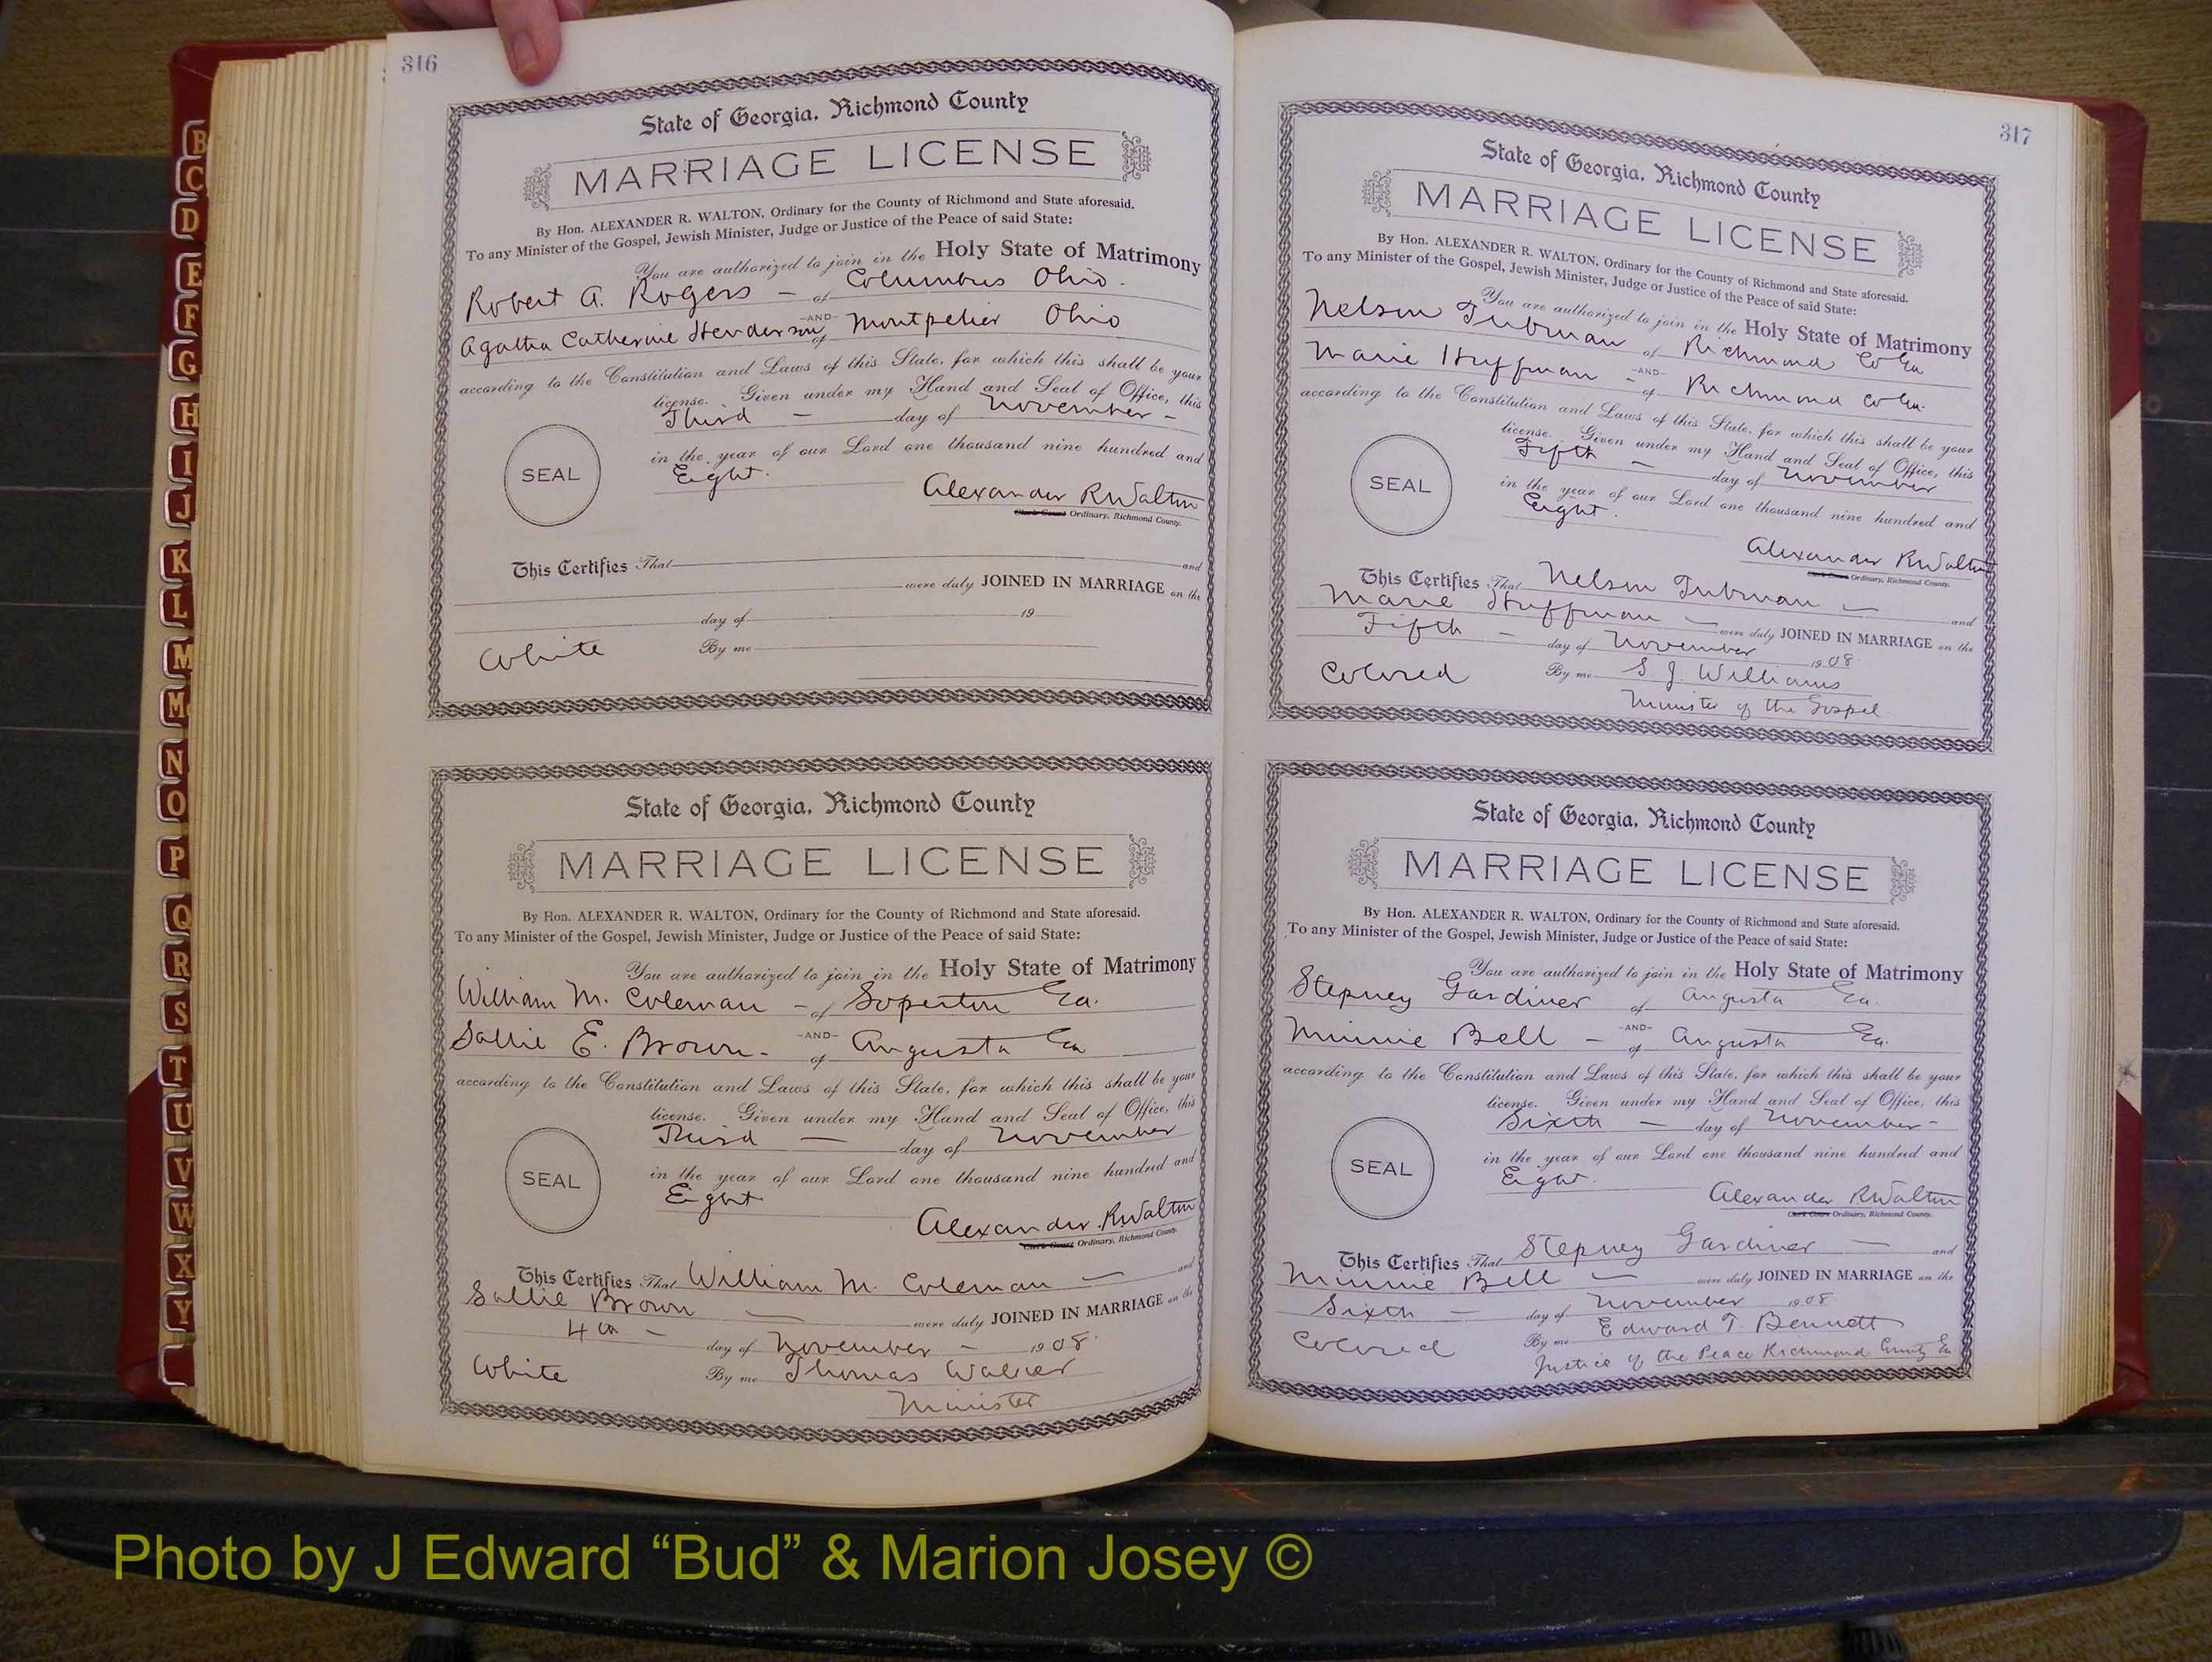 316
State of Georgia, Richmond County
MARRIAGE LICENSE
By Hon. ALEXANDER R. WALTON, Ordinary for the County of Richmond and State aforesaid.
To any Minister of the Gospel, Jewish Minister, Judge or Justice of the Peace of said State:
You are authorized to join in the Holy State of Matrimony
Robert A. Rogers - of Columbus Ohio.
-AND-
Agatha Catherine Henderson, of Montpelier Ohio
according to the Constitution and Laws of this State, for which this shall be your
license. Given under my Hand and Seal of Office, this
Third - day of November -
in the year of our Lord one thousand nine hundred and
Eight.
SEAL
Alexander R Walton
Clerk Court Ordinary, Richmond County.
This Certifies That and
were duly JOINED IN MARRIAGE on the
day of 19
White By me
State of Georgia, Richmond County
MARRIAGE LICENSE
By Hon. ALEXANDER R. WALTON, Ordinary for the County of Richmond and State aforesaid.
To any Minister of the Gospel, Jewish Minister, Judge or Justice of the Peace of said State:
You are authorized to join in the Holy State of Matrimony
William M. Coleman - of Soperton Ga.
-AND-
Sallie E. Brown - of Augusta Ga
according to the Constitution and Laws of this State, for which this shall be your
license. Given under my Hand and Seal of Office, this
Third - day of November
in the year of our Lord one thousand nine hundred and
Eight
SEAL
Alexander R Walton
Clerk Court Ordinary, Richmond County.
This Certifies That William M. Coleman - and
Sallie Brown - were duly JOINED IN MARRIAGE on the
4th - day of November - 1908.
White By me Thomas Walker
Minister
317
State of Georgia, Richmond County
MARRIAGE LICENSE
By Hon. ALEXANDER R. WALTON, Ordinary for the County of Richmond and State aforesaid.
To any Minister of the Gospel, Jewish Minister, Judge or Justice of the Peace of said State:
You are authorized to join in the Holy State of Matrimony
Nelson Tubman of Richmond Co Ga
-AND-
Marie Huffman - of Richmond Co Ga.
according to the Constitution and Laws of this State, for which this shall be your
license. Given under my Hand and Seal of Office, this
Fifth - day of November
in the year of our Lord one thousand nine hundred and
Eight.
SEAL
Alexander R Walton
Clerk Court Ordinary, Richmond County.
This Certifies That Nelson Tubman - and
Marie Huffman - were duly JOINED IN MARRIAGE on the
Fifth - day of November 1908
Colored By me S. J. Williams
Minister of the Gospel
State of Georgia, Richmond County
MARRIAGE LICENSE
By Hon. ALEXANDER R. WALTON, Ordinary for the County of Richmond and State aforesaid.
To any Minister of the Gospel, Jewish Minister, Judge or Justice of the Peace of said State:
You are authorized to join in the Holy State of Matrimony
Stepney Gardiner of Augusta Ga.
-AND-
Minnie Bell - of Augusta Ga.
according to the Constitution and Laws of this State, for which this shall be your
license. Given under my Hand and Seal of Office, this
Sixth - day of November -
in the year of our Lord one thousand nine hundred and
Eight.
SEAL
Alexander R Walton
Clerk Court Ordinary, Richmond County.
This Certifies That Stepney Gardiner - and
Minnie Bell - were duly JOINED IN MARRIAGE on the
Sixth - day of November 1908.
Colored By me Edward T. Bennett
Justice of the Peace Richmond County Ga
B
C
D
E
F
G
H
I
J
K
L
M
M
N
O
P
Q
R
S
T
U
V
W
X
Y
Photo by J Edward “Bud” & Marion Josey ©